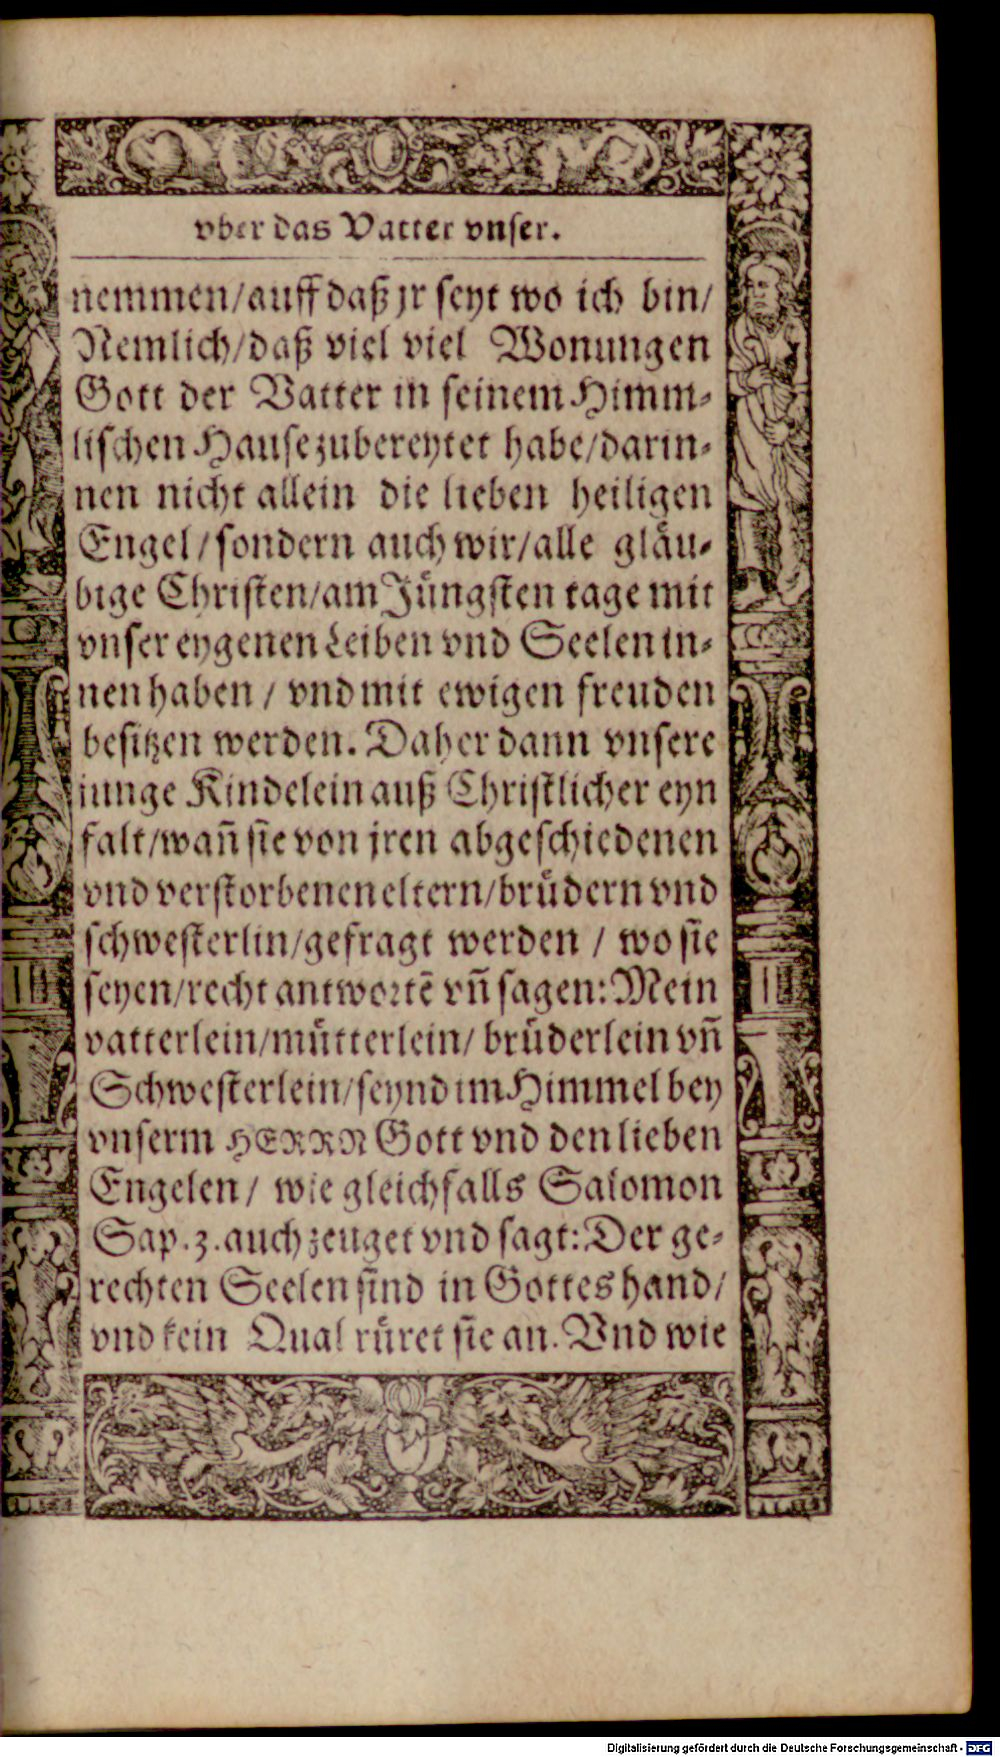 vber das Vatter vnser.
nemmen/auff daß jr seyt wo ich bin/
Nemlich/daß viel viel Wonungen
Gott der Vatter in seinem Himm-
lischen Hause zubereytet habe/darin-
nen nicht allein die lieben heiligen
Engel/sondern auch wir/alle gläu-
bige Christen/am Jüngsten tage mit
vnser eygenen Leiben vnd Seelen in-
nen haben / vnd mit ewigen freuden
besitzen werden. Daher dann vnsere
junge Kindelein auß Christlicher eyn
falt/wañ sie von jren abgeschiedenen
vnd verstorbenen eltern/brüdern vnd
schwesterlin/gefragt werden / wo sie
seyen/recht antwortẽ vñ sagen: Mein
vatterlein/mütterlein/ brüderlein vñ
Schwesterlein/seynd im Himmel bey
vnserm HERRN Gott vnd den lieben
Engelen/ wie gleichfalls Salomon
Sap. 3. auch zeuget vnd sagt: Der ge-
rechten Seelen sind in Gottes hand/
vnd kein Qual rüret sie an. Vnd wie
Digitalisierung gefördert durch die Deutsche Forschungsgemeinschaft - DFG